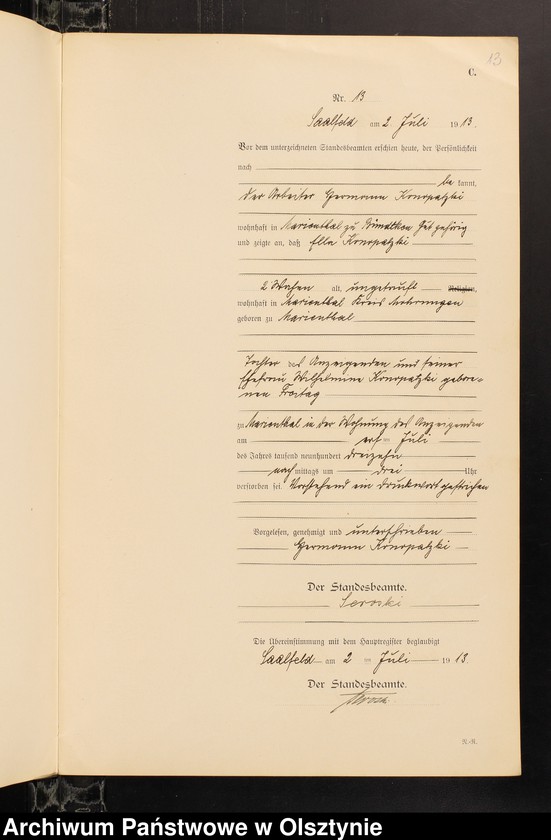 13
C.
Nr. 13
Saalfeld am 2 Juli 1913.
Vor dem unterzeichneten Standesbeamten erschien heute, der Persönlichkeit
nach
be kannt,
der Arbeiter Hermann Konopatzki
wohnhaft in Marienthal zu gehörig
und zeigte an, daß Ella Konopatzki
2 Wochen alt, ungetauft Religion,
wohnhaft in Marienthal Kreis Mohrungen
geboren zu Marienthal
Tochter des Anzeigenden und seiner
Ehefrau Wilhelmine Konopatzki gebore-
nen Freitag
zu Marienthal in der Wohnung des Anzeigenden
am ersten Juli
des Jahres tausend neunhundert dreizehn
nach mittags um drei Uhr
verstorben sei. Vorstehend ein Druckwort gestrichen
Vorgelesen, genehmigt und unterschrieben
Hermann Konopatzki
Der Standesbeamte.
Die Übereinstimmung mit dem Hauptregister beglaubigt
Saalfeld am 2 ten Juli 1913.
Der Standesbeamte.
Archiwum Państwowe w Olsztynie